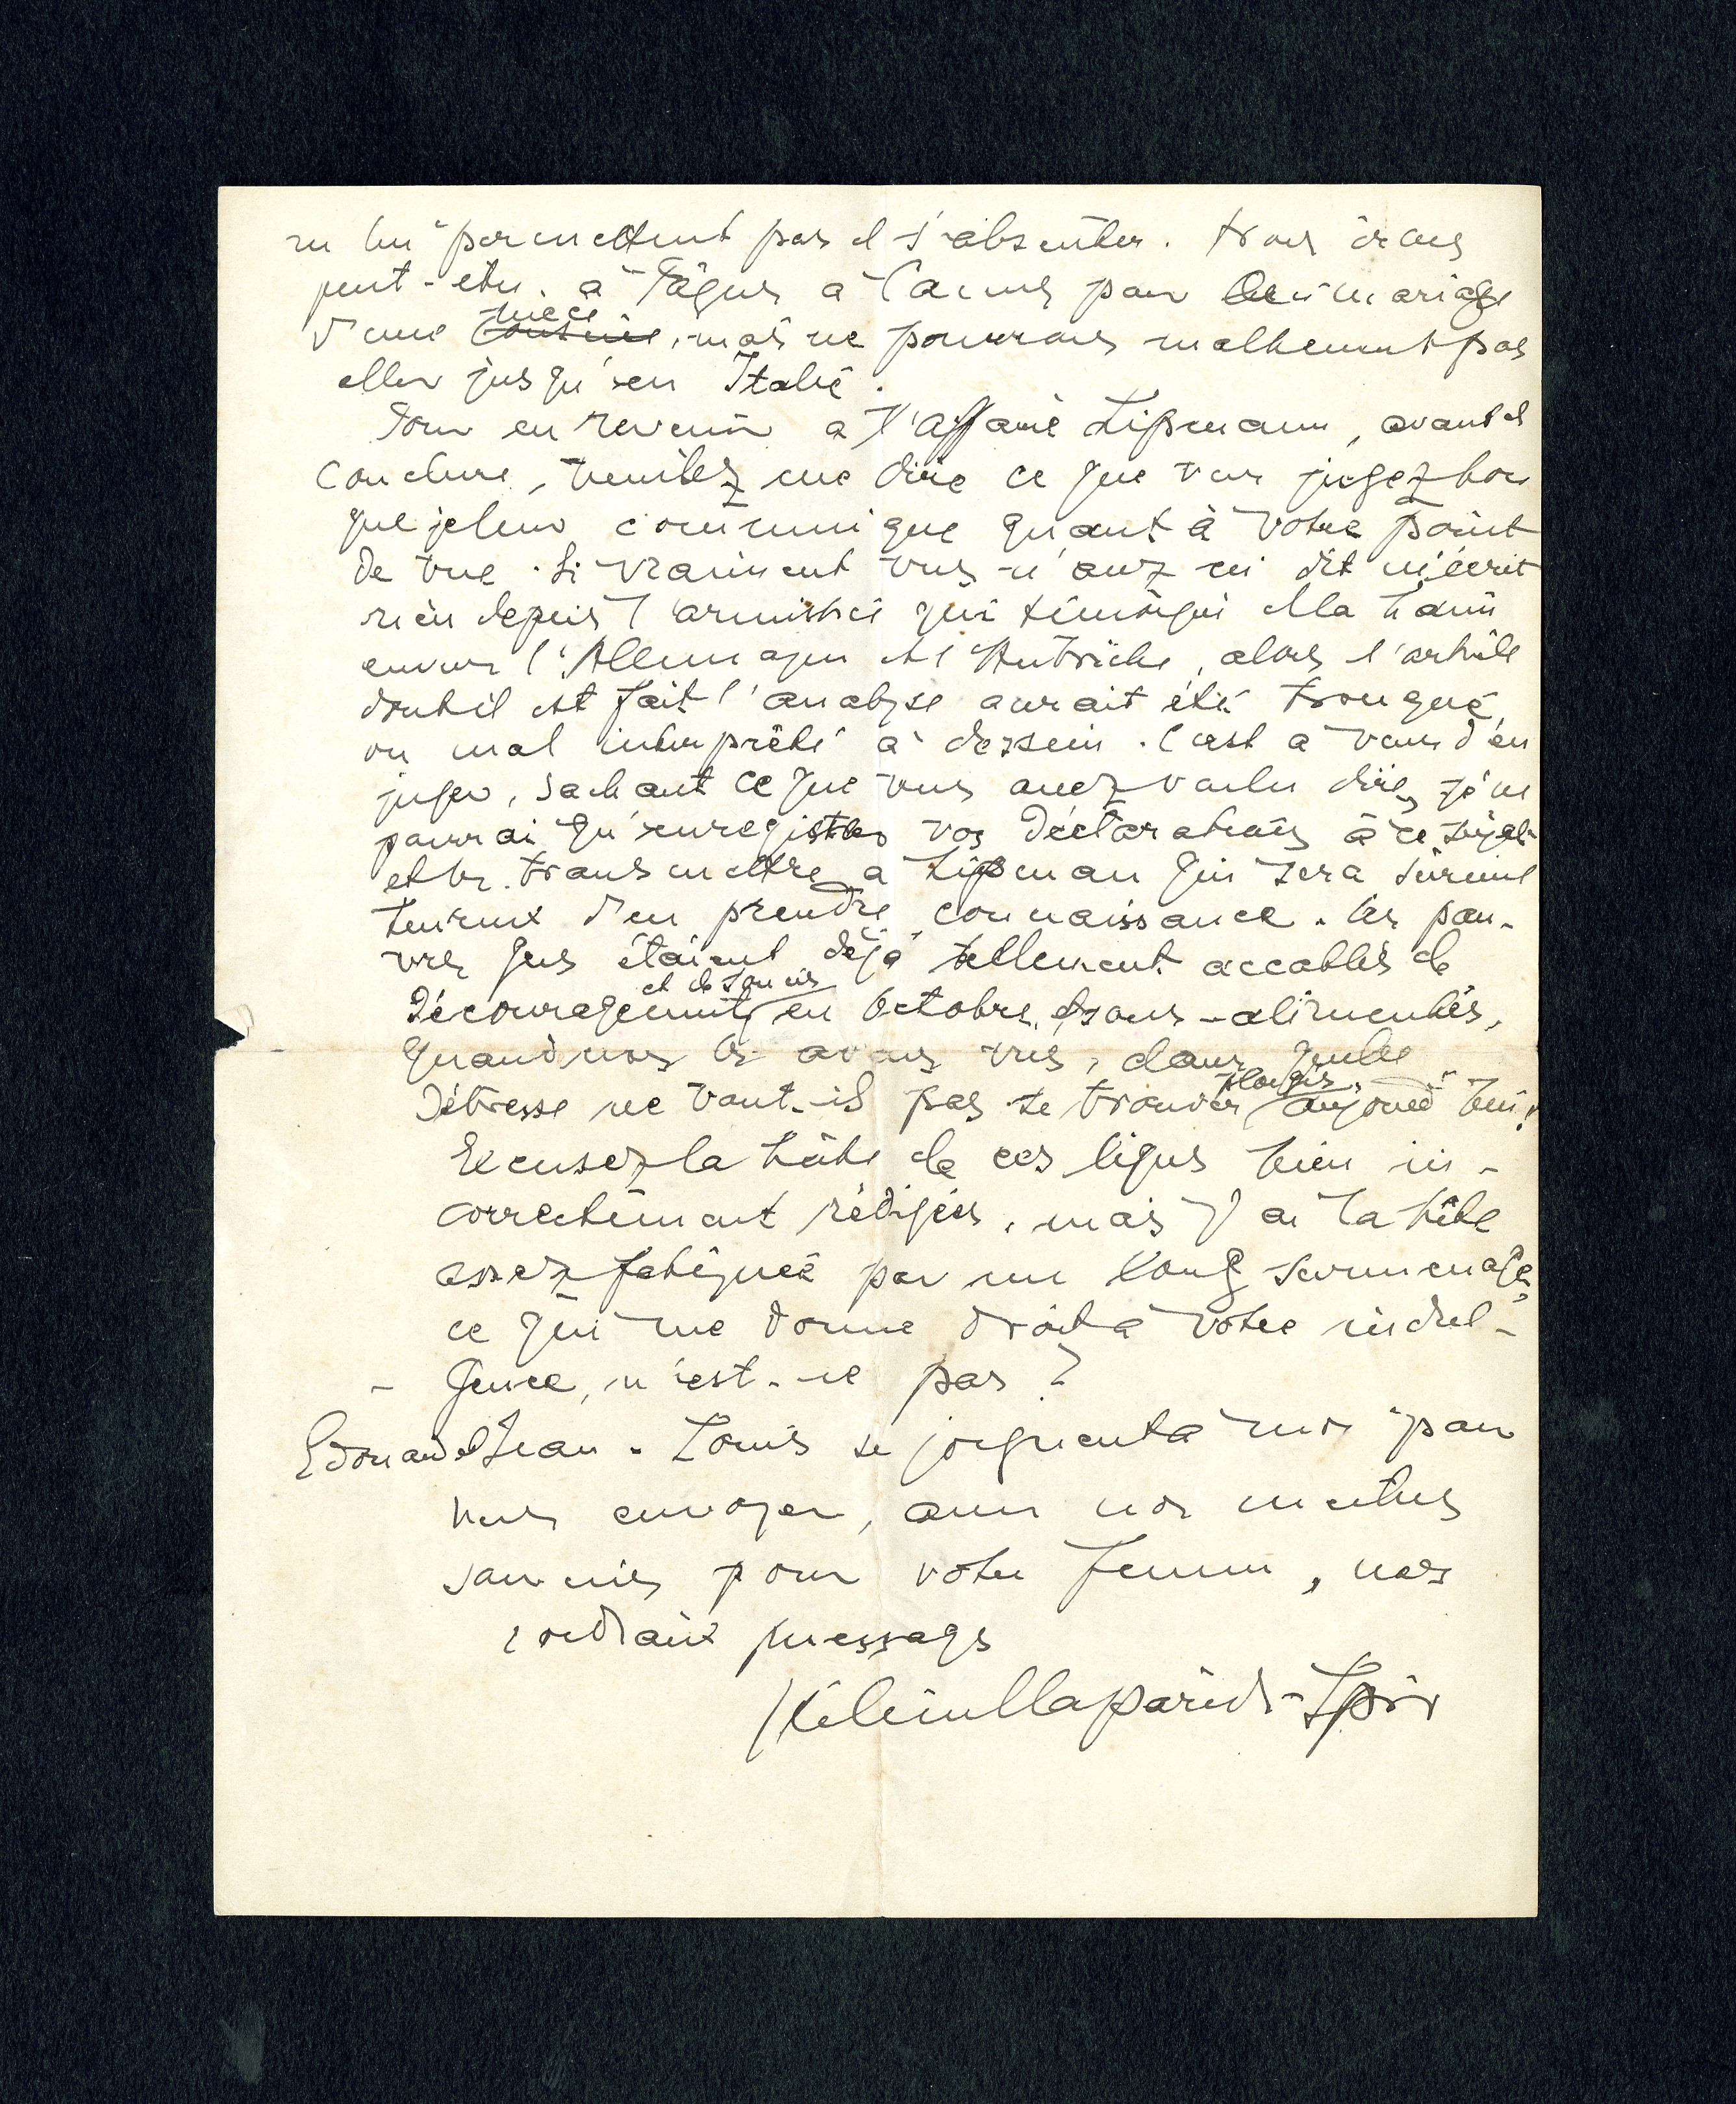 ne lui permettent pas de s'absenter. Nous irons
peut-être à Pâques à Cannes pour le mariage
d'une cousine nièce, mais ne pourrons malheureut pas
aller jusqu'en Italie.
Pour en revenir a l'affaire Lipmann, avant de
conclure, veuillez me dire ce que vous jugez bon
que je leur communique quant à votre point
de vue. Si vraiment vous n'avez ni dit ni écrit
rien depuis l'armistice qui témoigne de la haine
envers l'Allemagne et l'Autriche, alors l'article
dont il est fait l'analyse aurait été tronqué,
ou mal interprété à dessein. C'est a vous d'en
juger, sachant ce que vous avez voulu dire, je ne
pourrai qu'enregistrer vos déclarations à ce sujet
et les transmettre a Lipman qui sera sûremt
heureux d'en prendre connaissance. Les pau-
vres gens étaient déjà tellement accablés de
découragement et de soucis en octobre, sous-alimentés,
quand nous les avons vus, dans quelle
détresse ne vont-ils pas se trouver plongés aujourd'hui!
Excusez la hâte de ces lignes bien in-
correctement rédigées, mais j'ai la tête
assez fatiguée par un long surmenage,
ce qui me donne droit à votre indul-
- gence, n'est-ce pas?
Edouard et Jean-Louis se joignent à moi pour
vous envoyer, avec nos meilleurs
souvenirs pour votre femme, nos
cordiaux messages
Hélène Claparède-Spir